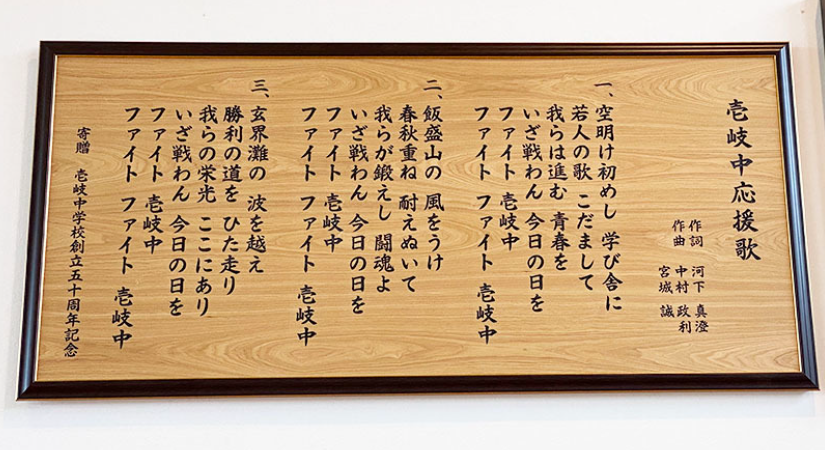 壱岐中応援歌
作詞 河下 真澄
作曲 中村 政利
宮城 誠
一、空明け初めし 学び舎に
若人の歌 こだまして
我らは進む 青春を
いざ戦わん 今日の日を
ファイト 壱岐中
ファイト ファイト 壱岐中
二、飯盛山の 風をうけ
春秋重ね 耐えぬいて
我らが鍛えし 闘魂よ
いざ戦わん 今日の日を
ファイト 壱岐中
ファイト ファイト 壱岐中
三、玄界灘の 波を越え
勝利の道を ひた走り
我らの栄光 ここにあり
いざ戦わん 今日の日を
ファイト 壱岐中
ファイト ファイト 壱岐中
寄贈 壱岐中学校創立五十周年記念